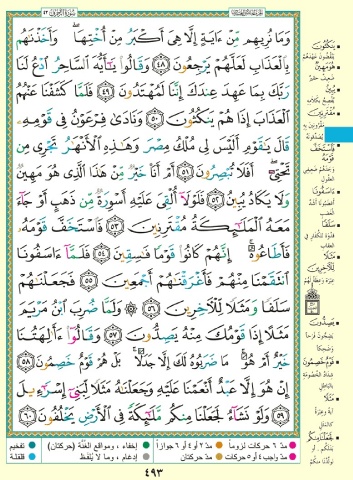 سُورَةُ الزُّخْرُفِ ٤٣
وَمَا نُرِيهِم مِّنْ ءَايَةٍ إِلَّا هِىَ أَكْبَرُ مِنْ أُخْتِهَا ۖ وَأَخَذْنَٰهُم
بِٱلْعَذَابِ لَعَلَّهُمْ يَرْجِعُونَ ٤٨ وَقَالُوا۟ يَٰٓأَيُّهَ ٱلسَّاحِرُ ٱدْعُ لَنَا
رَبَّكَ بِمَا عَهِدَ عِندَكَ إِنَّنَا لَمُهْتَدُونَ ٤٩ فَلَمَّا كَشَفْنَا عَنْهُمُ
ٱلْعَذَابَ إِذَا هُمْ يَنكُثُونَ ٥٠ وَنَادَىٰ فِرْعَوْنُ فِى قَوْمِهِۦ
قَالَ يَٰقَوْمِ أَلَيْسَ لِى مُلْكُ مِصْرَ وَهَٰذِهِ ٱلْأَنْهَٰرُ تَجْرِى مِن
تَحْتِىٓ ۖ أَفَلَا تُبْصِرُونَ ٥١ أَمْ أَنَا۠ خَيْرٌ مِّنْ هَٰذَا ٱلَّذِى هُوَ مَهِينٌ
وَلَا يَكَادُ يُبِينُ ٥٢ فَلَوْلَآ أُلْقِىَ عَلَيْهِ أَسْوِرَةٌ مِّن ذَهَبٍ أَوْ جَآءَ
مَعَهُ ٱلْمَلَٰٓئِكَةُ مُقْتَرِنِينَ ٥٣ فَٱسْتَخَفَّ قَوْمَهُۥ
فَأَطَاعُوهُ ۚ إِنَّهُمْ كَانُوا۟ قَوْمًا فَٰسِقِينَ ٥٤ فَلَمَّآ ءَاسَفُونَا
ٱنتَقَمْنَا مِنْهُمْ فَأَغْرَقْنَٰهُمْ أَجْمَعِينَ ٥٥ فَجَعَلْنَٰهُمْ
سَلَفًا وَمَثَلًا لِّلْءَاخِرِينَ ٥٦ وَلَمَّا ضُرِبَ ٱبْنُ مَرْيَمَ
مَثَلًا إِذَا قَوْمُكَ مِنْهُ يَصِدُّونَ ٥٧ وَقَالُوٓا۟ ءَأَٰلِهَتُنَا
خَيْرٌ أَمْ هُوَ ۚ مَا ضَرَبُوهُ لَكَ إِلَّا جَدَلًۢا ۚ بَلْ هُمْ قَوْمٌ خَصِمُونَ ٥٨
إِنْ هُوَ إِلَّا عَبْدٌ أَنْعَمْنَا عَلَيْهِ وَجَعَلْنَٰهُ مَثَلًا لِّبَنِىٓ إِسْرَٰٓءِيلَ
٥٩ وَلَوْ نَشَآءُ لَجَعَلْنَا مِنكُم مَّلَٰٓئِكَةً فِى ٱلْأَرْضِ يَخْلُفُونَ ٦٠
يَنكُثُونَ
يَنقُضُونَ عَهْدَهُمْ
هُوَ مَهِينٌ
ضَعِيفٌ حَقِيرٌ
يُبِينُ
يُفْصِحُ بِكَلَامِهِ
مُقْتَرِنِينَ
فَاسْتَخَفَّ قَوْمَهُ
ءَاسَفُونَا
أَغْضَبُونَا أَشَدَّ
الْغَضَبِ
سَلَفًا
قُدْوَةً لِلْكُفَّارِ
مَثَلًا لِّلْآخِرِينَ
يَصِدُّونَ
قَوْمٌ خَصِمُونَ
شِدَادُ الْخُصُومَةِ
بِالْبَاطِلِ
مَثَلًا
لَجَعَلْنَا مِنكُم
مدّ ٦ حركات لزوماً
مدّ ٢ أو ٤ أو ٦ جوازاً
مدّ واجب ٤ أو ٥ حركات
مدّ حركتان
إخفاء، ومواقع الغُنَّة (حركتان)
إدغام، وما لا يُلفَظ
تفخيم
قلقلة
٤٩٣